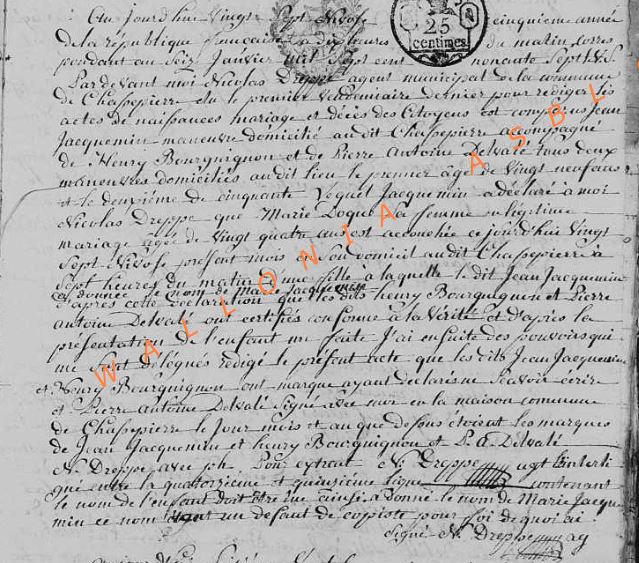 Aujourd'hui Vingt Sept Nivose cinquieme année
de la république française a dix heures du matin corres
pondant au Seize Janvier mil Sept cent nonante Sept V.S.
Pardevant moi Nicolas Dreppe agent municipal de la commune
de Chassepierre élu le premier Vendemiaire dernier pour rediger les
actes de naissances mariage et décès des Citoyens est comparu Jean
Jacquemin manœuvre domicilié audit Chassepierre accompagné
de Henry Bourguignon et de Pierre Antoine Delvalé tous deux
manœuvres domiciliés audit lieu le premier âgé de Vingt neuf ans
et le deuxième de cinquante Lequel Jacquemin a déclaré à moi
Nicolas Dreppe que Marie Doque Sa femme en légitime
mariage âgée de Vingt quatre ans est accouchée cejourd'hui Vingt
Sept Nivose present mois en Son domicil audit Chassepierre à
Sept heures du matin d'une fille a laquelle le dit Jean Jacquemin
a donnée le nom de Marie Jacquemin
d'après cette déclaration que les dits henry Bourguignon et Pierre
Antoine Delvalé ont certifiés conforme à la Vérité et d'après la
présentation de l'enfant me faite J'ai ensuite des pouvoirs qui
me sont délégués redigé le présent acte que les dits Jean Jacquemin
et Henry Bourguignon ont marque ayant déclaré ne Scavoir écrire
et Pierre antoine Delvalé Signé avec moi en la maison commune
de Chassepierre le Jour mois et an que dessus étoient les marques
de Jean Jacquemin et henry Bourguignon et P. A. Delvalé
N. Dreppe avec ph. Pour extrait N. Dreppe agt Linterli
gné entre la quatorzieme et quinzieme ligne contenant
le nom de l'enfant doit être lue ainsi, a Donné le nom de Marie Jacque
min ce nom étant un defaut de copiste pour foi de quoi ai
Signé N. Dreppe ag
25
centimes
WALLONIA ASBL